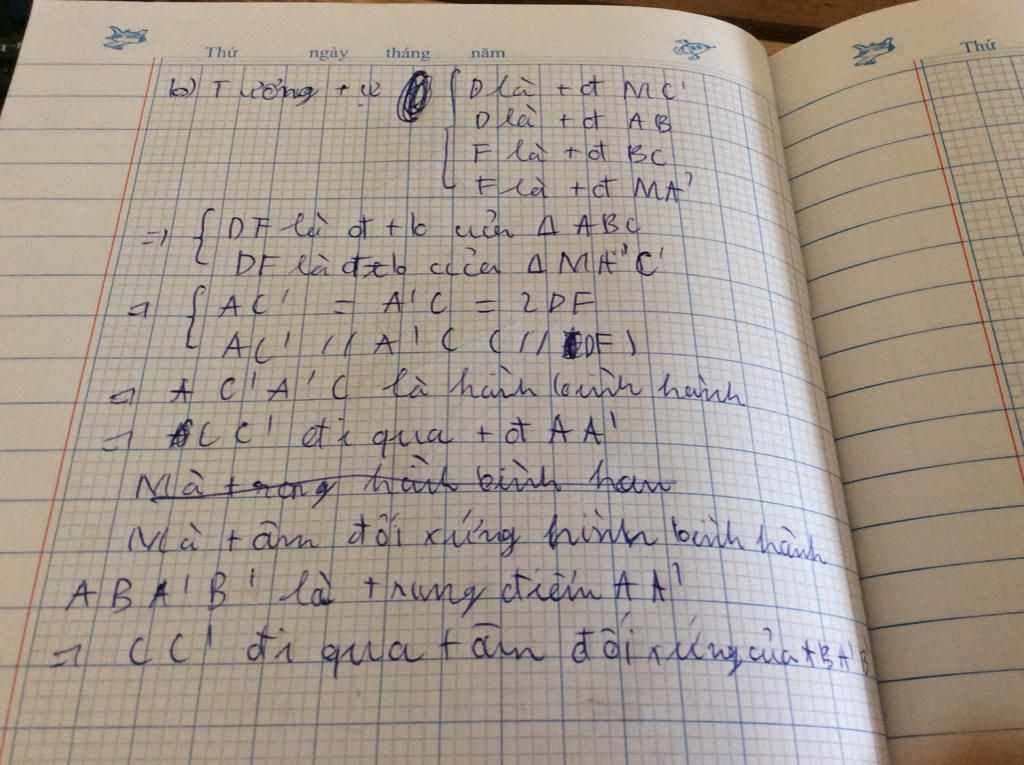 Thứ ngày tháng năm
Thứ
b) Tương tự { D là tđ MC'
D là tđ AB
F là tđ BC
F là tđ MA'
=> { DF là đtb của Δ ABC
DF là đtb của Δ MA'C'
=> { AC' = A'C = 2DF
AC' // A'C (// DF)
=> AC'A'C là hình bình hành
=> CC' đi qua tđ AA'
Mà trong hình bình han
Mà tâm đối xứng hình bình hành
ABA'B' là trung điểm AA'
=> CC' đi qua tâm đối xứng của ABA'B'